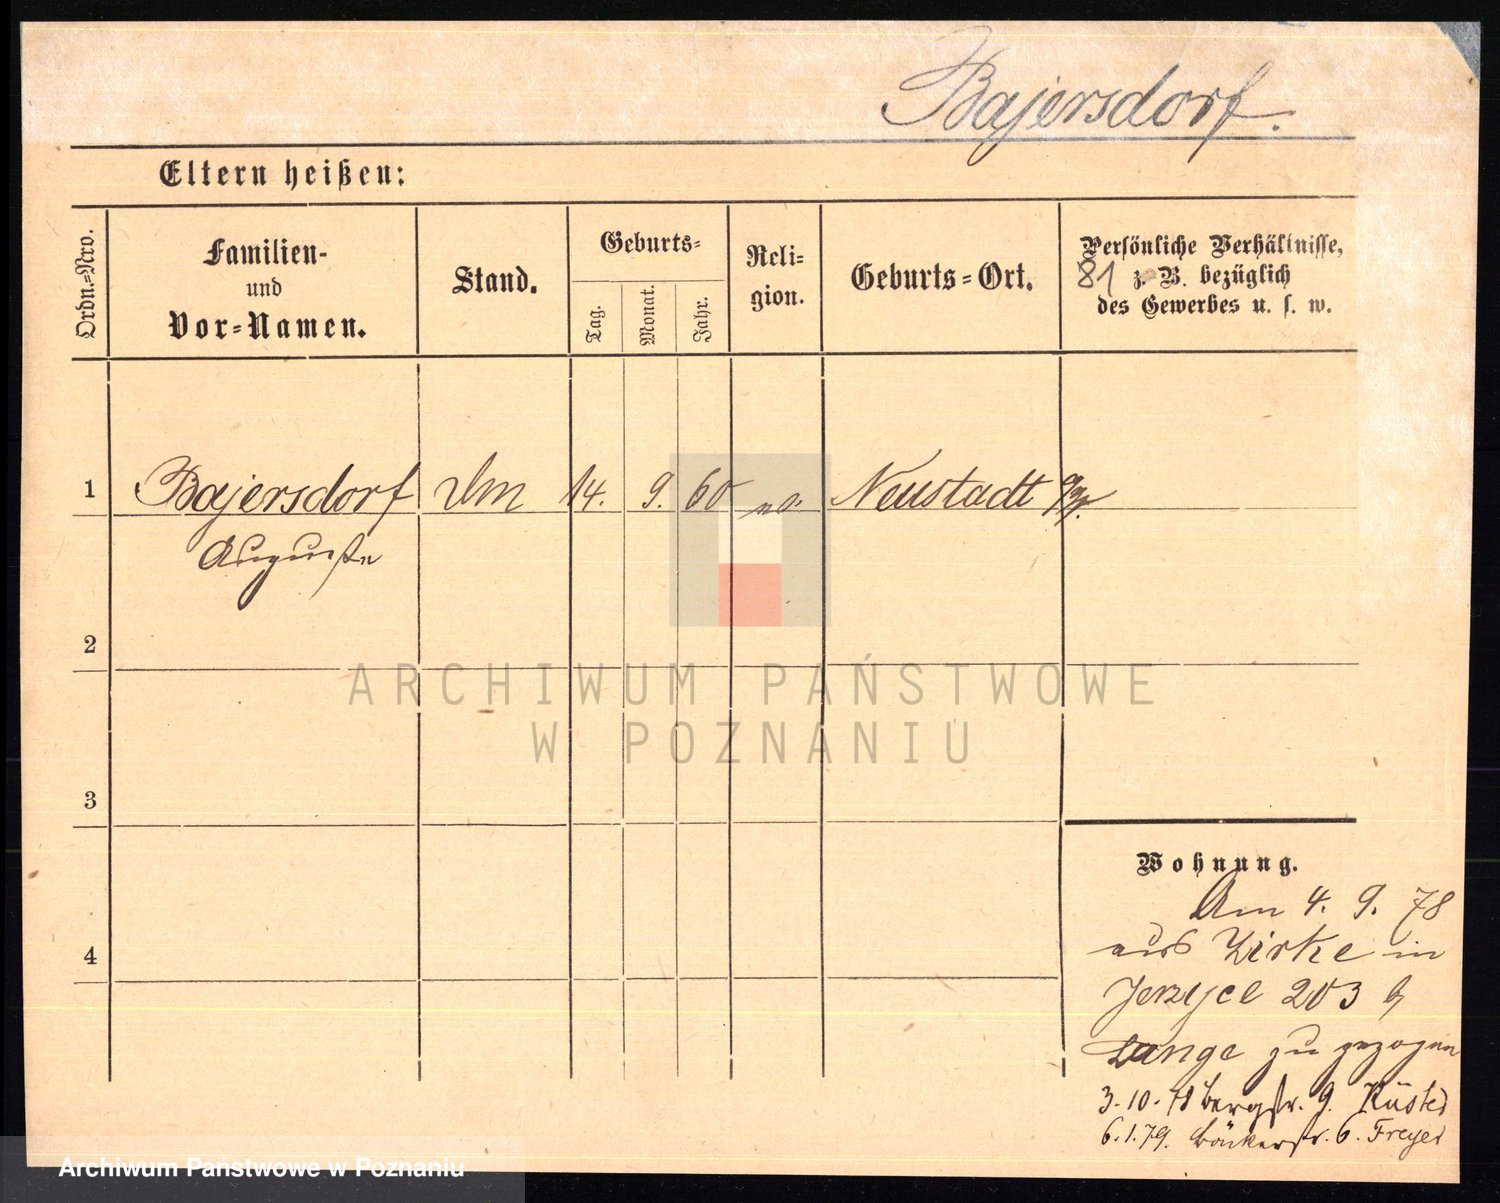 Bajersdorf.
Eltern heißen:
Ordn.-Nro.
Familien-
und
Vor-Namen.
Stand.
Geburts-
Tag.
Monat.
Jahr.
Reli-
gion.
Geburts-Ort.
Persönliche Verhältnisse,
81 z. B. bezüglich
des Gewerbes u. s. w.
1 Bajersdorf 14. 9. 60 Neustadt
Auguste
2
ARCHIWUM PAŃSTWOWE
W POZNANIU
3
4
Wohnung.
Am 4. 9. 78
aus Zirke in
Jerzyce 203 b
Lange zu gezogen
3.10.78 Bergstr. 9. Küster
6.1.79. Bäckerstr. 6. Freyer
Archiwum Państwowe w Poznaniu